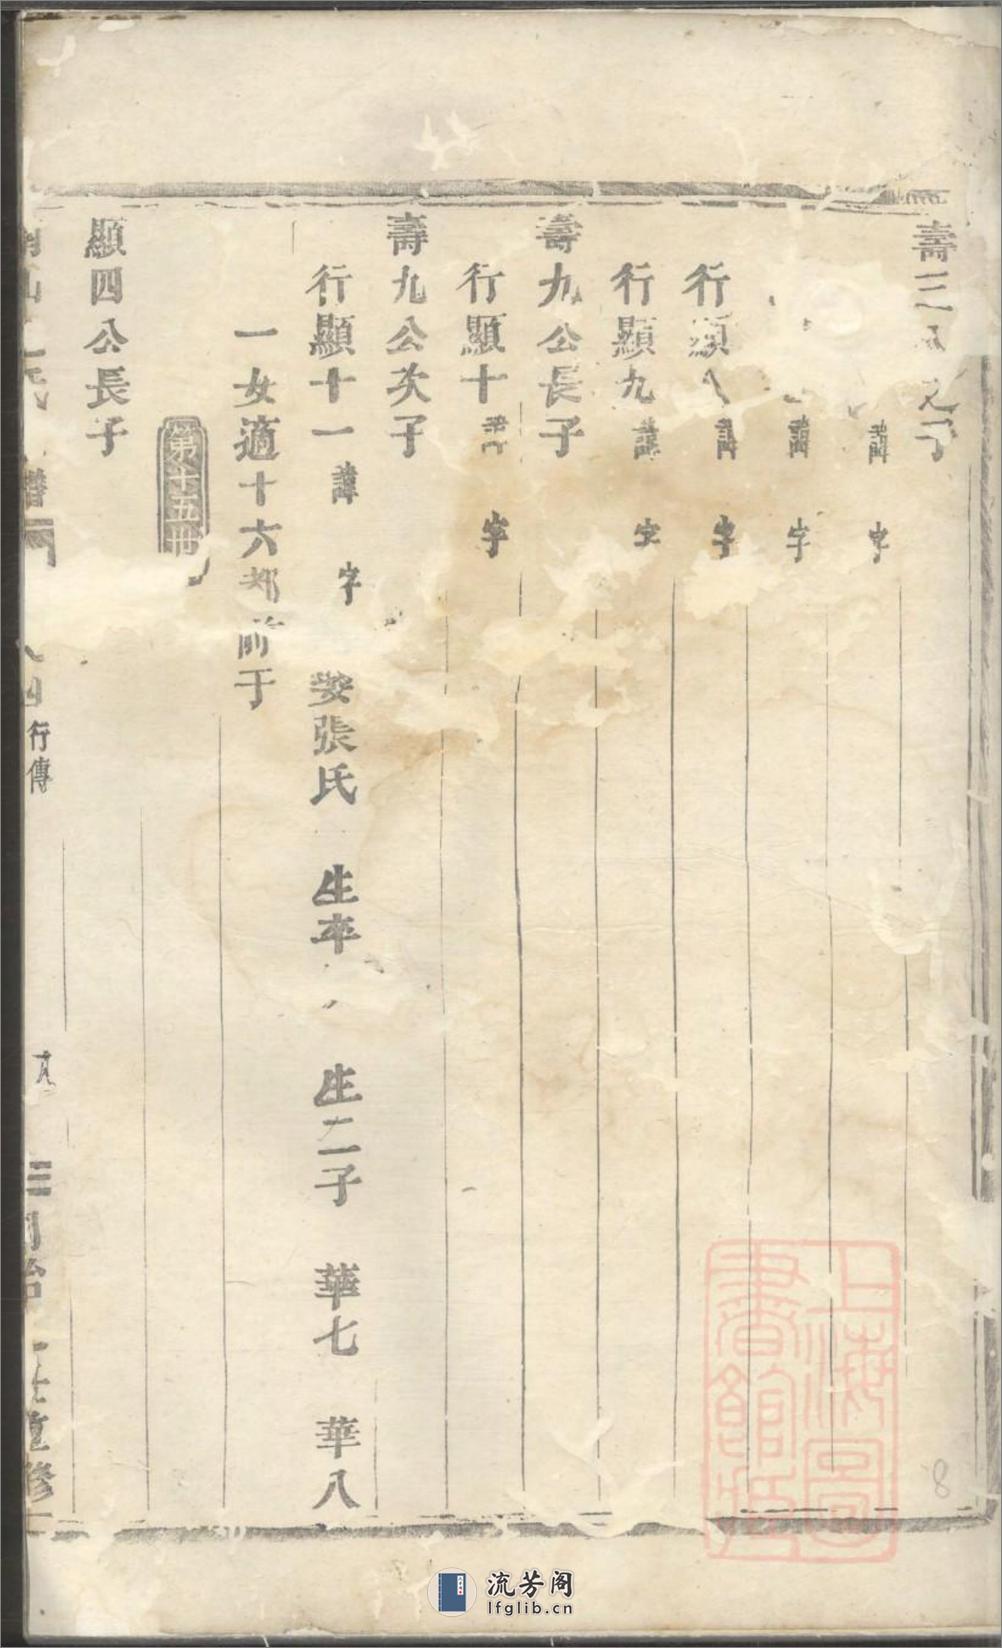 壽三
諱 字
諱 字
行顯八 諱 字
行顯九 諱 字
壽九公長子
行顯十 諱 字
壽九公次子
行顯十一 諱 字 娶張氏 生卒 生二子 華七 華八
一女適十六都前于
第十五冊
顯四公長子
譜
行傳
同治 重修
上海圖書館藏
8
流芳阁
lfglib.cn